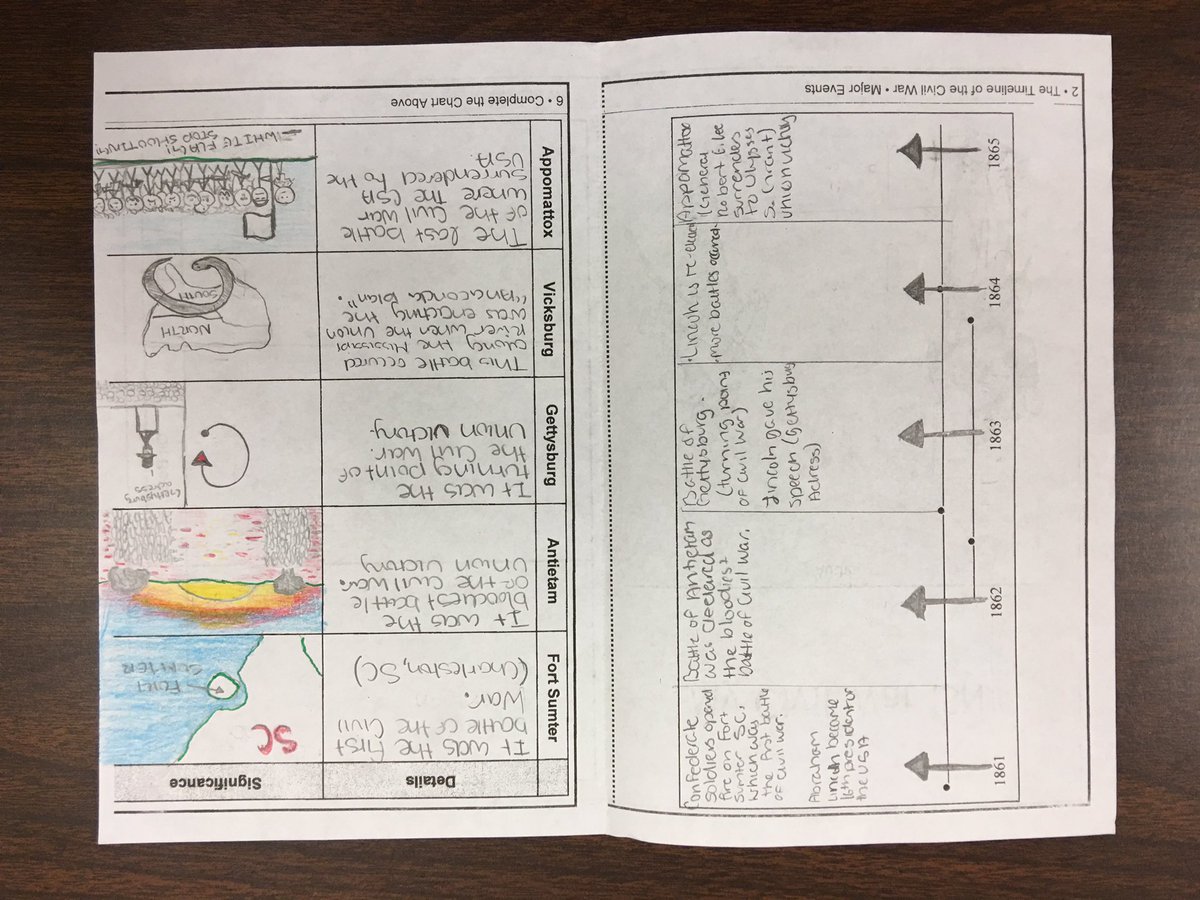 6 • Complete the Chart Above
Details
Significance
Fort Sumter
It was the first
battle of the Civil
War.
(Charleston, SC)
SC
FORT
SUMTER
Antietam
It was the
bloodiest battle
of the Civil War.
Union Victory
Gettysburg
It was the
turning point of
the Civil War.
Union Victory
Gettysburg
adress
Vicksburg
This battle occured
along the Mississippi
River when the Union
was enacting the
"Anaconda Plan".
NORTH
SOUTH
Appomattox
The last battle
of the Civil War
where the CSA
surrendered to the
USA.
-WHITE FLAG!
STOP SHOOTING!!
2 • The Timeline of the Civil War • Major Events
1861
Confederate
soldiers opened
fire on Fort
Sumter SC,
which was
the first battle
of Civil War.
Abraham
Lincoln became
16th president of
the USA
1862
Battle of Antietam
was declared as
the bloodiest
battle of Civil War.
1863
Battle of
Gettysburg.
(turning point
of Civil War)
Lincoln gave his
speech (Gettysburg
Adress)
1864
•Lincoln is re-elected
•more battles
1865
Appomattox
(General
Robert E. Lee
surrenders
to Ulysses
S. Grant)
Union Victory